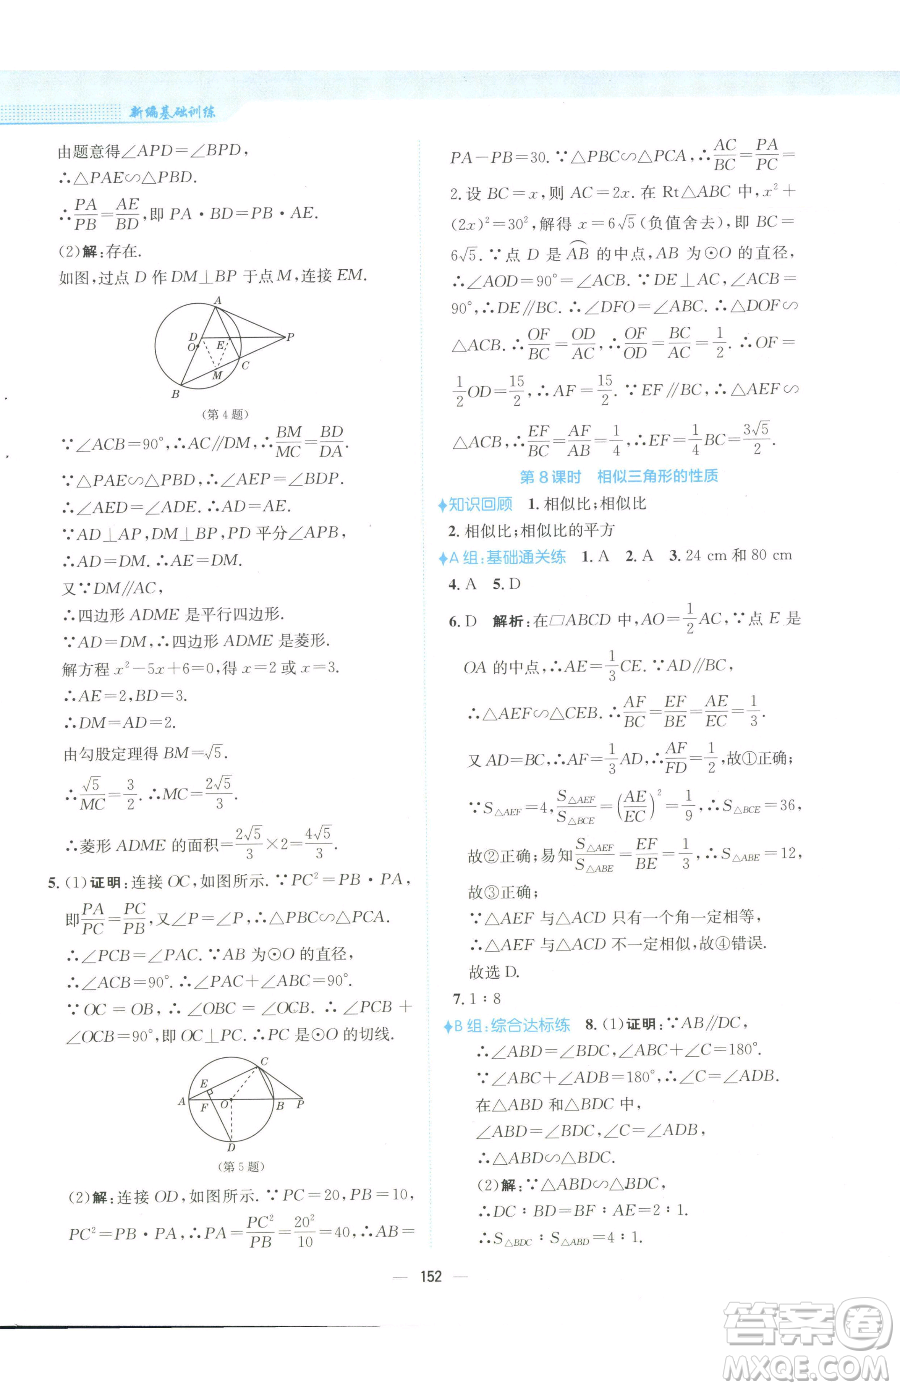 新编基础训练
由题意得∠APD=∠BPD,
∴△PAE∽△PBD.
∴PA/PB=AE/BD,即 PA·BD=PB·AE.
(2)解:存在.
如图,过点 D 作 DM⊥BP 于点 M,连接 EM.
A
D
E
P
O
C
M
B
(第 4 题)
∵∠ACB=90°,∴AC∥DM,∴BM/MC=BD/DA.
∵△PAE∽△PBD,∴∠AEP=∠BDP.
∴∠AED=∠ADE.∴AD=AE.
∵AD⊥AP,DM⊥BP,DP平分∠APB,
∴AD=DM.∴DM=AE.
又∵DM∥AC,
∴四边形 ADME 是平行四边形.
∵AD=DM,∴四边形 ADME 是菱形.
解方程 x²-5x+6=0,得 x=2 或 x=3.
∴AE=2,BD=3.
∴DM=AD=2.
由勾股定理得 BM=√5.
∴√5/MC=3/2.∴MC=2√5/3.
∴菱形 ADME 的面积=2√5/3×2=4√5/3.
5.(1)证明:连接 OC,如图所示.∵PC²=PB·PA,
即PA/PC=PC/PB,又∵∠P=∠P,∴△PBC∽△PCA.
∴∠PCB=∠PAC.∵AB 为⊙O 的直径,
∴∠ACB=90°.∴∠A+∠ABC=90°.
∵OC=OB,∴∠OBC=∠OCB.∴∠PCB+
∠OCB=90°,即 OC⊥PC.∴PC 是⊙O 的切线.
C
E
A
F
O
B
P
D
(第 5 题)
(2)解:连接 OD,如图所示.∵PC=20,PB=10,
PC²=PB·PA,∴PA=PC²/PB=20²/10=40.∴AB=
PA-PB=30.∵△PBC∽△PCA,∴AC/BC=PA/PC=
2.设 BC=x,则 AC=2x.在 Rt△ABC 中,x²+
(2x)²=30²,解得 x=6√5(负值舍去),即 BC=
6√5.∵点 D 是AB⌒的中点,AB 为⊙O 的直径,
∴∠AOD=90°.∵DE⊥AC,∴∠AEF=
90°.∴DE∥BC.∴∠DFO=∠ABC.∴△DOF∽
△ACB.∴OF/BC=OD/AC.∴OF/OD=BC/AC=1/2.∴OF=
1/2OD=15/2,∴AF=15/2.∵EF∥BC,∴△AEF∽
△ACB.∴EF/BC=AF/AB=1/4.∴EF=1/4BC=3√5/2.
第 8 课时 相似三角形的性质
知识回顾 1.相似比;相似比
2.相似比;相似比的平方
A 组:基础通关练 1.A 2.A 3.24 cm 和 80 cm
4.A 5.D
6.D 解析:在▱ABCD 中,AO=1/2AC,∵点 E 是
OA 的中点,∴AE=1/3CE.∵AD∥BC,
∴△AEF∽△CEB.∴AF/BC=EF/BE=AE/EC=1/3.
又 AD=BC,∴AF=1/3AD,∴AF/FD=1/2,故①正确;
∵S△AEF=4,S△AEF/S△BCE=(AE/EC)²=1/9,∴S△BCE=36,
故②正确;易知S△AEF/S△ABE=EF/BE=1/3,∴S△ABE=12,
故③正确;
∵△AEF 与△ACD 只有一个角一定相等,
∴△AEF 与△ACD 不一定相似,故④错误.
故选 D.
7.1∶8
B 组:综合达标练 8.(1)证明:∵AB∥DC,
∴∠ABD=∠BDC,∠ABC+∠C=180°.
∵∠ABC+∠ADB=180°,∴∠C=∠ADB.
在△ABD 和△BDC 中,
∠ABD=∠BDC,∠C=∠ADB,
∴△ABD∽△BDC.
(2)解:∵△ABD∽△BDC,
∴DC∶BD=BF∶AE=2∶1.
∴S△BDC∶S△ABD=4∶1.
152
答案卷
MXQE.COM